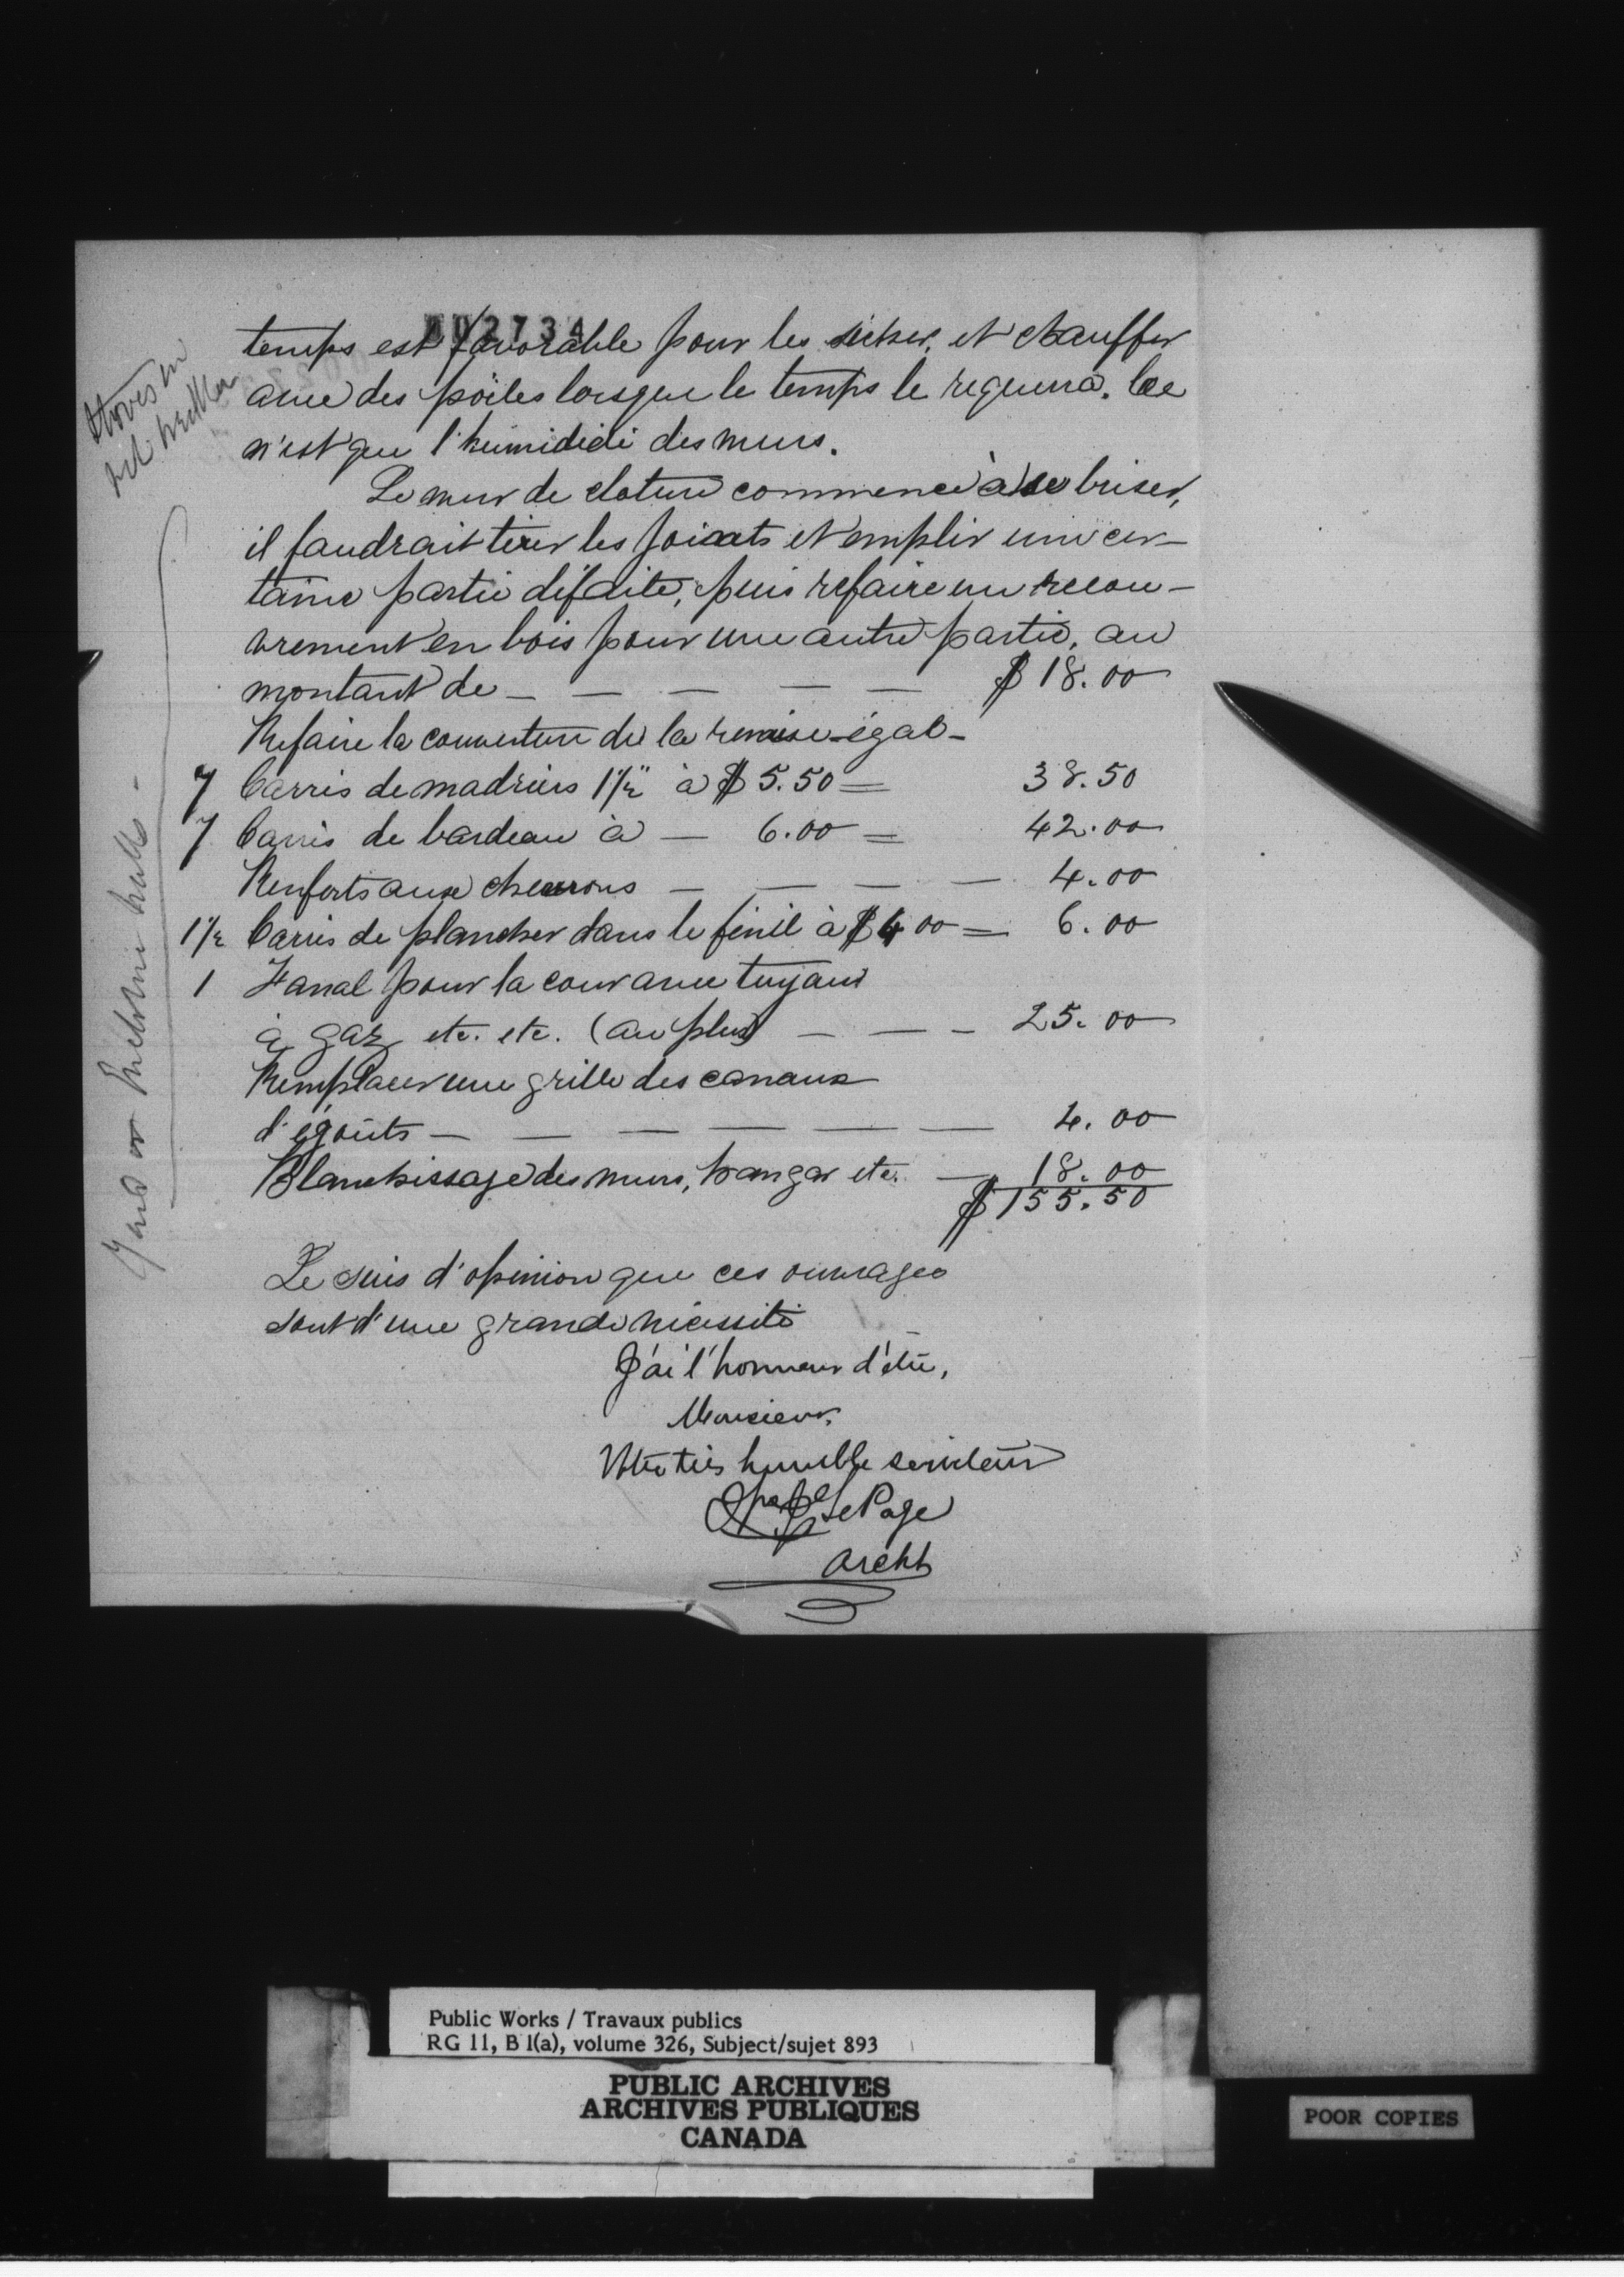 002734
temps est favorable pour les sécher, et chauffer
avec des pöeles lorsque le temps le requerra. Ce
n'est que l'humididé des murs.
Le mur de cloture commence à se briser,
il faudrait tirer les joints et emplir une cer-
taine partie défaite, puis refaire un recou-
vrement en bois pour une autre partie, au
montant de — — — — — $18.00
Refaire la couverture de la remise égal-
7 Carrés de madriers 1½" à $5.50 = 38.50
7 Carrés de bardeau à — 6.00 = 42.00
Renforts aux chevrons — — — — 4.00
1½ Carrés de plancher dans le fénil à $4 00 = 6.00
1 Fanal pour la cour avec tuyaux
à gaz etc. etc. (au plus) — — — 25.00
Remplacer une grille des canaux
d'égoûts — — — — — — 4.00
Blanchissage des murs, hangar etc. — 18.00
$155.50
Je suis d'opinion que ces ouvrages
sont d'une grande nécessité
J'ai l'honneur d'être,
Monsieur,
Votre très humble serviteur
LePage
Archt
Stoves in
Yard
Public Works / Travaux publics
RG 11, B 1(a), volume 326, Subject/sujet 893
PUBLIC ARCHIVES
ARCHIVES PUBLIQUES
CANADA
POOR COPIES